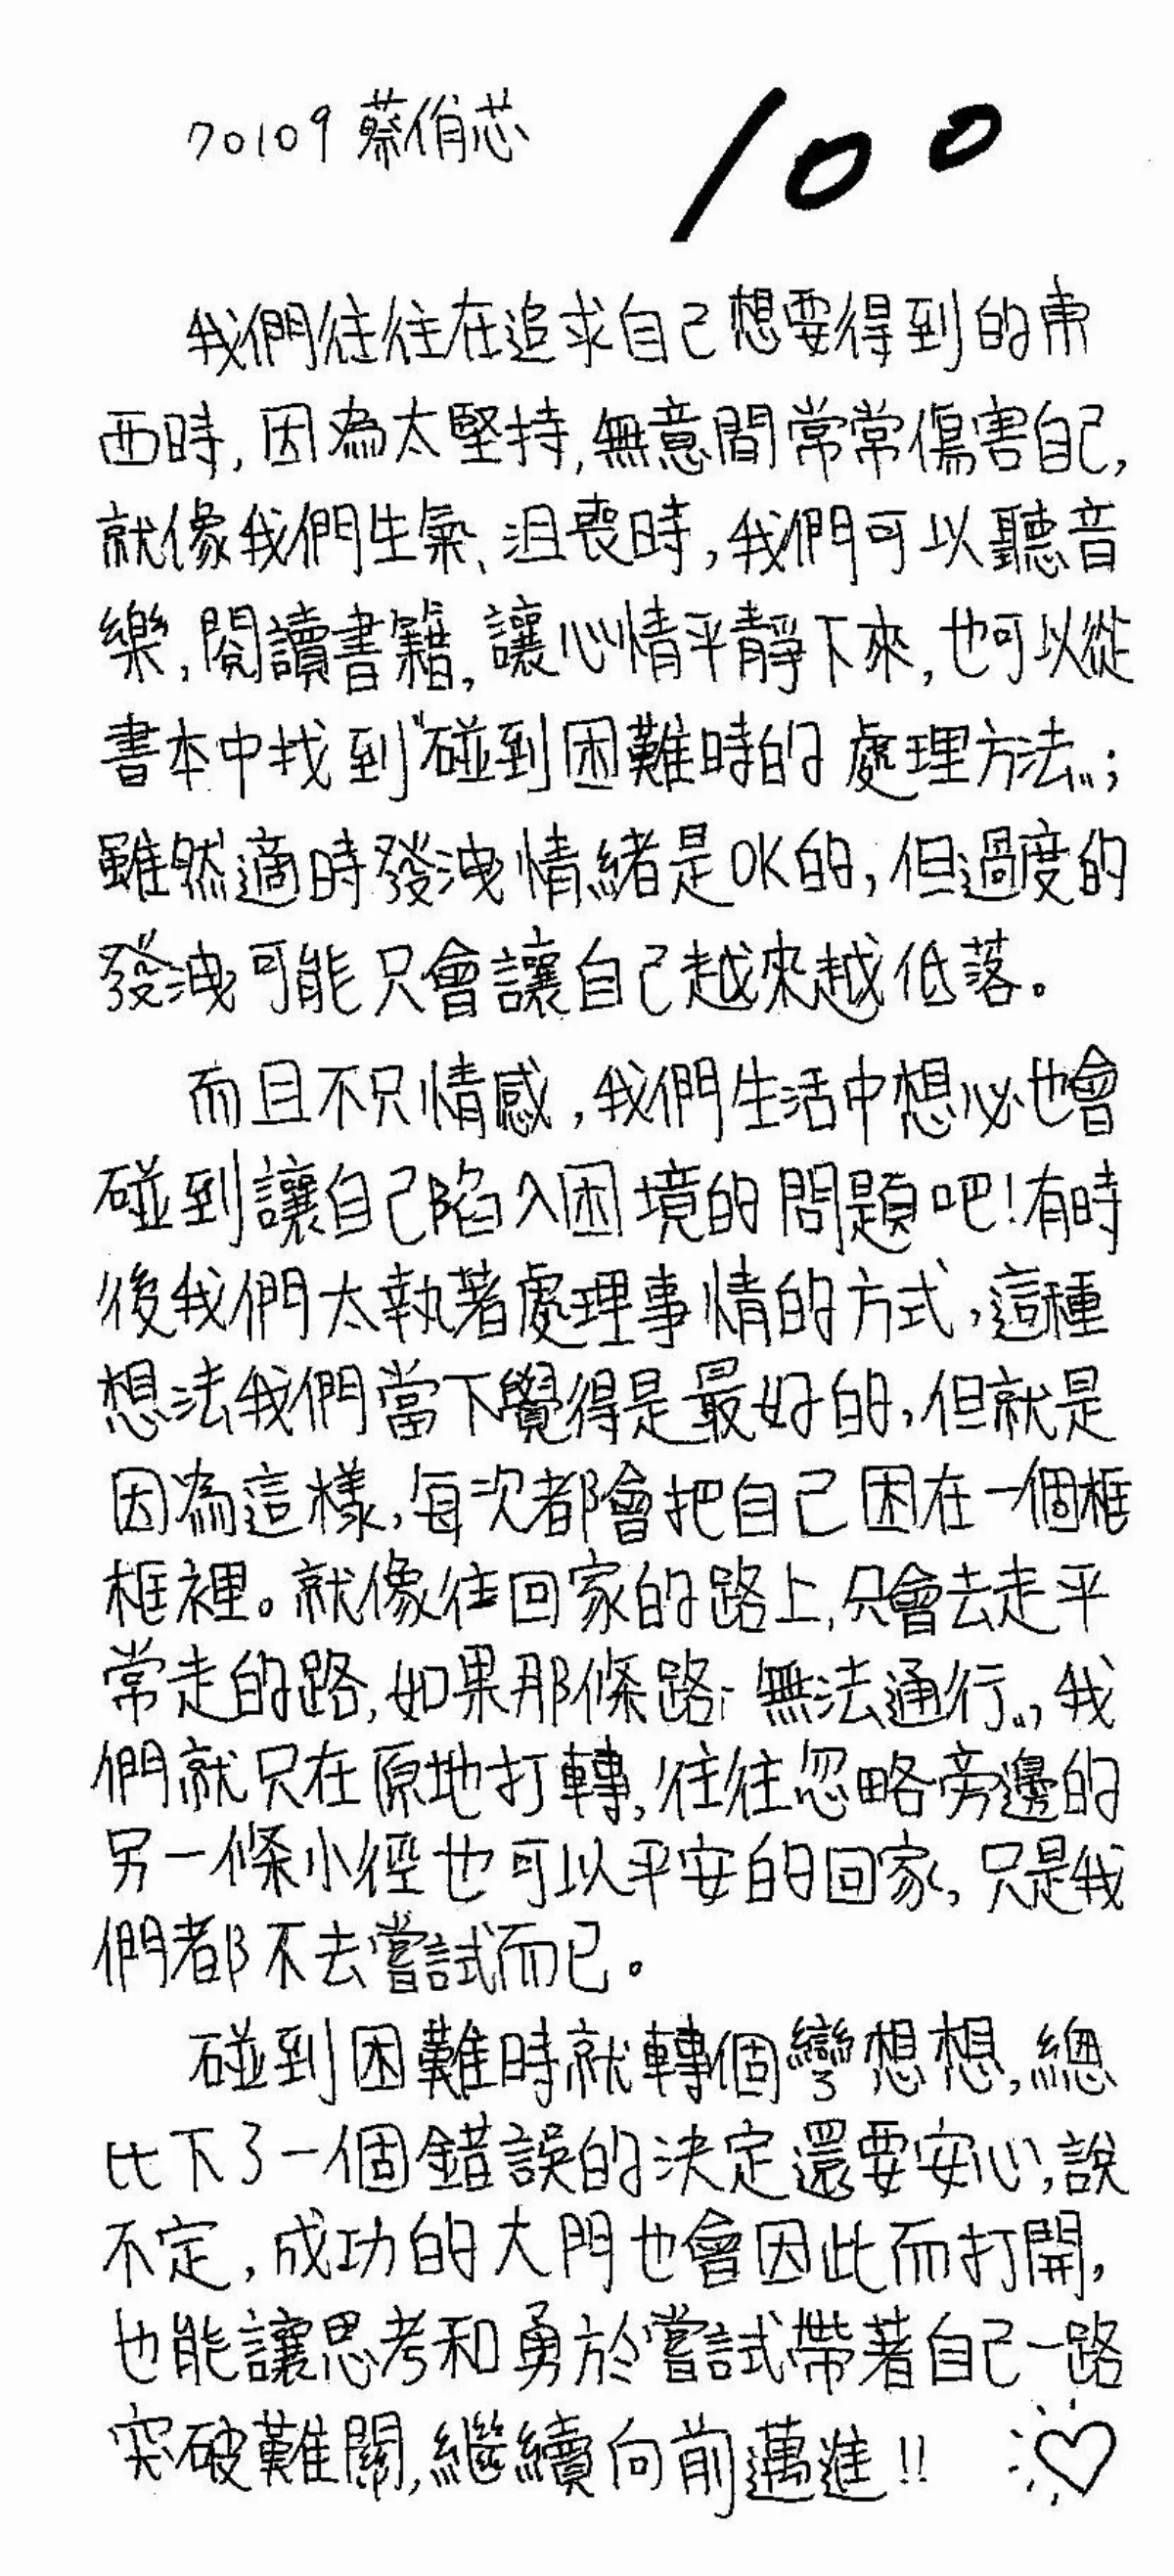 70109 蔡佾芯
100
我們往往在追求自己想要得到的東
西時,因為太堅持,無意間常常傷害自己,
就像我們生氣、沮喪時,我們可以聽音
樂,閱讀書籍,讓心情平靜下來,也可以從
書本中找到"碰到困難時的處理方法";
雖然適時發洩情緒是OK的,但過度的
發洩可能只會讓自己越來越低落。
而且不只情感,我們生活中想必也會
碰到讓自己陷入困境的問題吧!有時
後我們太執著處理事情的方式,這種
想法我們當下覺得是最好的,但就是
因為這樣,每次都會把自己困在一個框
框裡。就像往回家的路上,只會去走平
常走的路,如果那條路"無法通行",我
們就只在原地打轉,往往忽略旁邊的
另一條小徑也可以平安的回家,只是我
們都不去嘗試而已。
碰到困難時就轉個彎想想,總
比下了一個錯誤的決定還要安心,說
不定,成功的大門也會因此而打開,
也能讓思考和勇於嘗試帶著自己一路
突破難關,繼續向前邁進!!